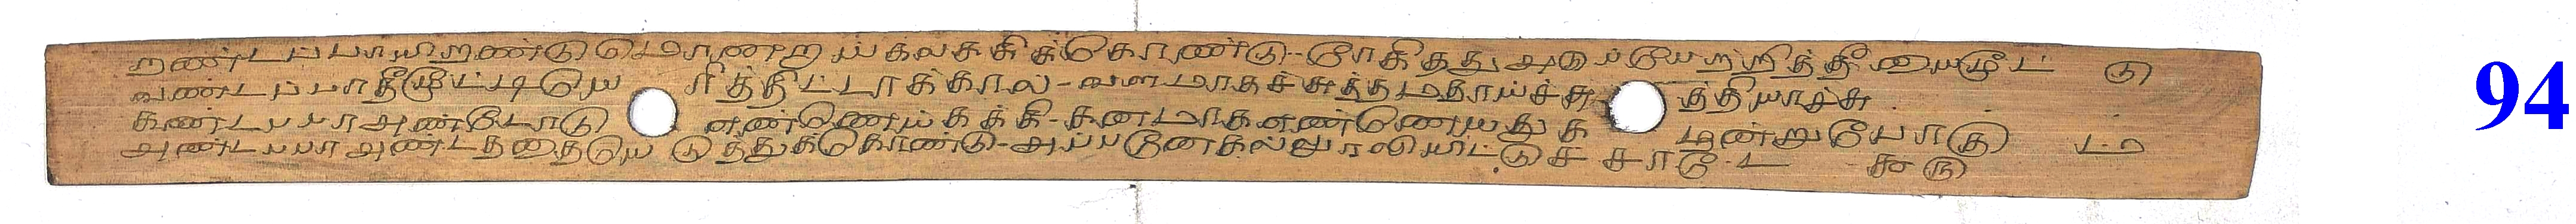 றண்டப்பாயிறண்டு மொணற ய்கலசசிக்கொண்டு-ரோகிதது அடுப்பேயற்றித்தீயைமூட் டு
வண்டப்பாதீமூட்டியெ ரித்திட்டாக்கால்-வளமாதச்சுத்தமதாய்ச்சு த்தியாச்சு
கண்டபபாஅண்டோடு எண்ணெய்கக்கி-கனமாகஎண்ணெயது க மூன்றுயோகு
அண்டபபாஅண்டத்தையெ டுத்துக்கொண்டு-அப்பனேகல்லுரலியிட்டுச் சாடே
94